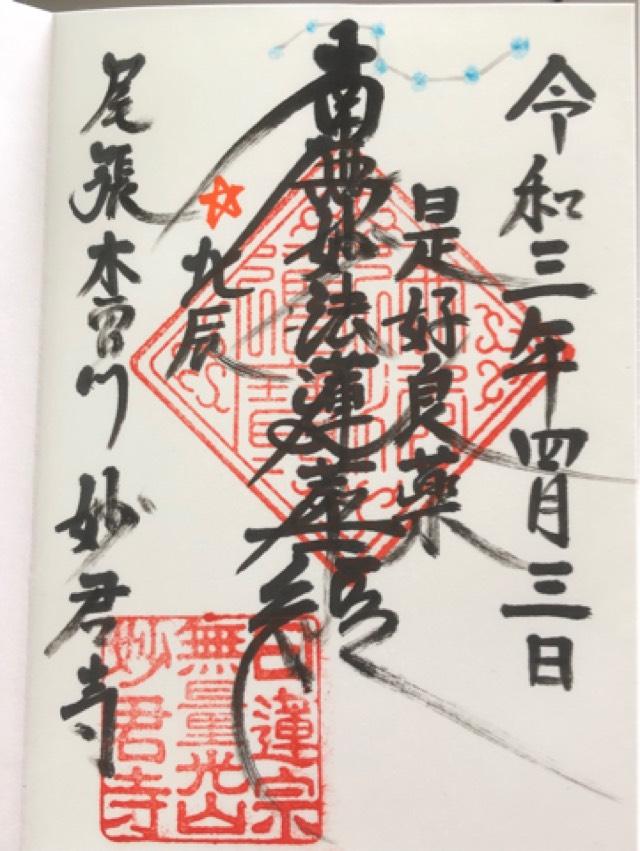 令和三年四月三日
是好良薬
南無妙法蓮華経
北辰
尾張木曽川 妙君寺
日蓮宗
無量光山
妙君寺